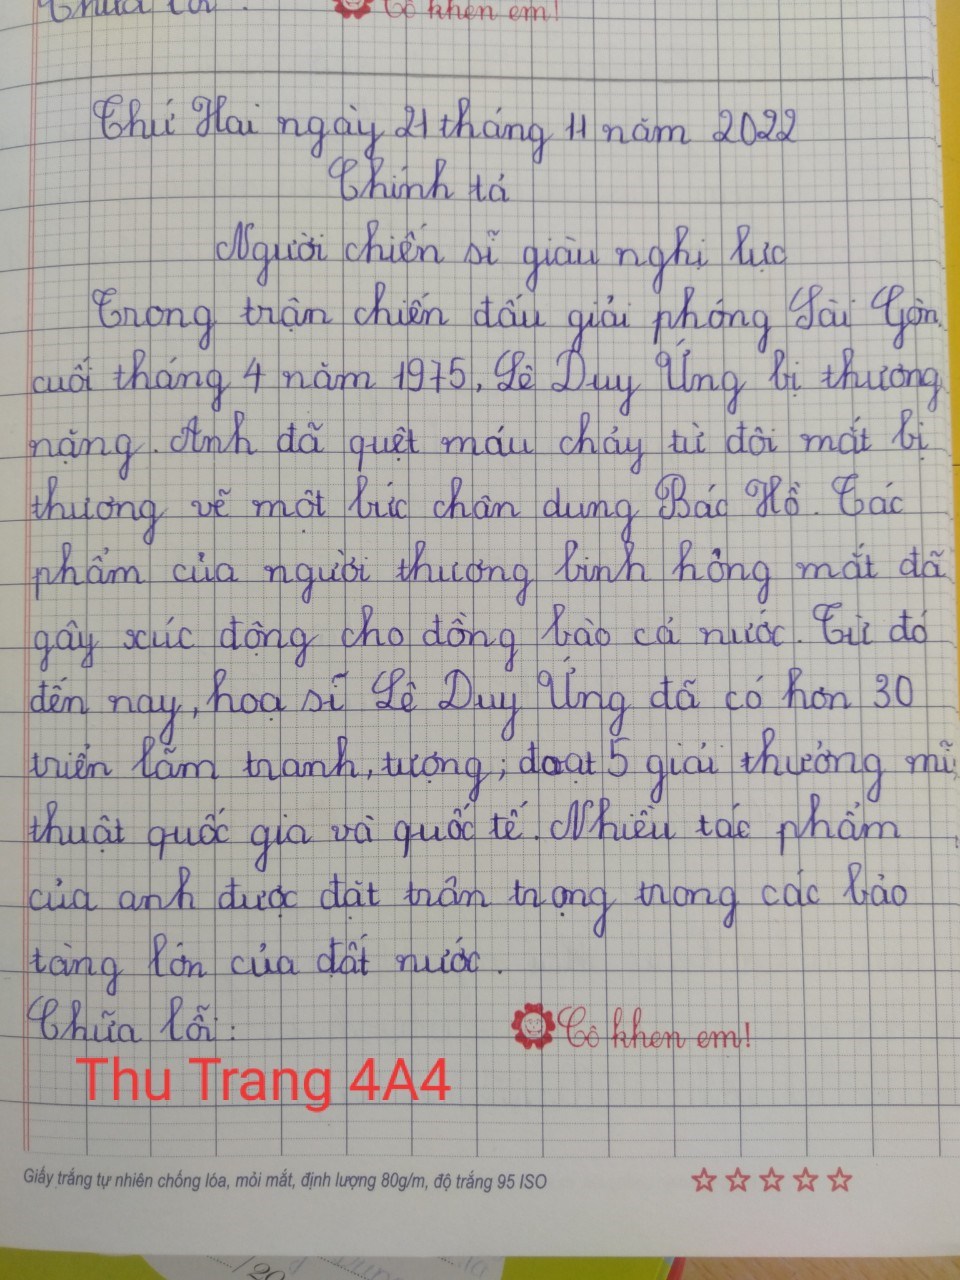 Chữa lỗi: Cô khen em!
Thứ Hai ngày 21 tháng 11 năm 2022
Chính tả
Người chiến sĩ giàu nghị lực
Trong trận chiến đấu giải phóng Sài Gòn,
cuối tháng 4 năm 1975, Lê Duy Ứng bị thương
nặng. Anh đã quệt máu chảy từ đôi mắt bị
thương vẽ một bức chân dung Bác Hồ. Tác
phẩm của người thương binh hỏng mắt đã
gây xúc động cho đồng bào cả nước. Từ đó
đến nay, hoạ sĩ Lê Duy Ứng đã có hơn 30
triển lãm tranh, tượng; đoạt 5 giải thưởng mĩ
thuật quốc gia và quốc tế. Nhiều tác phẩm
của anh được đặt trân trọng trong các bảo
tàng lớn của đất nước.
Chữa lỗi: Cô khen em!
Thu Trang 4A4
Giấy trắng tự nhiên chống lóa, mỏi mắt, định lượng 80g/m, độ trắng 95 ISO